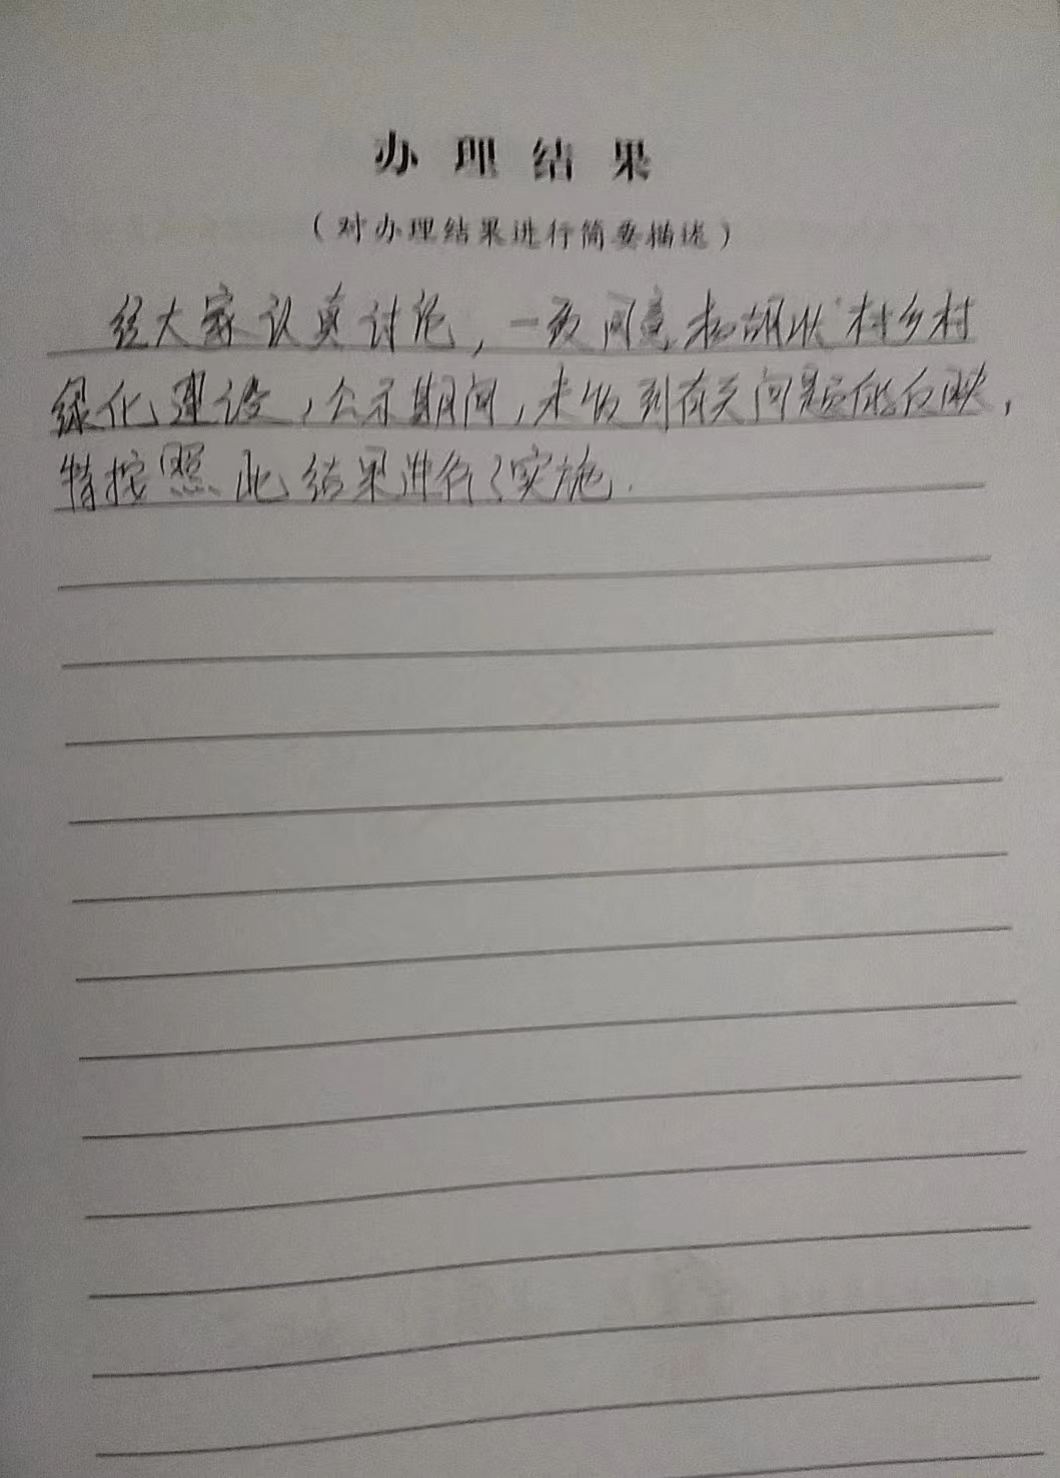 办理结果
（对办理结果进行简要描述）
经大家认真讨论，一致同意 村乡村
绿化建设，公示期间，未收到有关问题的反映，
特按照此结果进行了实施.